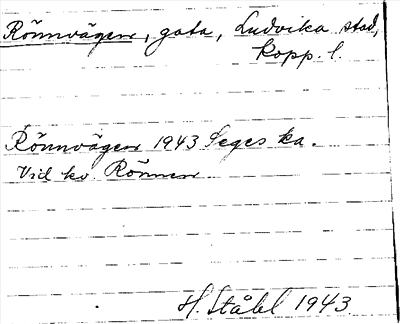 Rönnvägen, gata, Ludvika stad,
Kopp. l.
Rönnvägen 1943 Seges ka.
Vid kv. Rönnen
H. Ståhl 1943